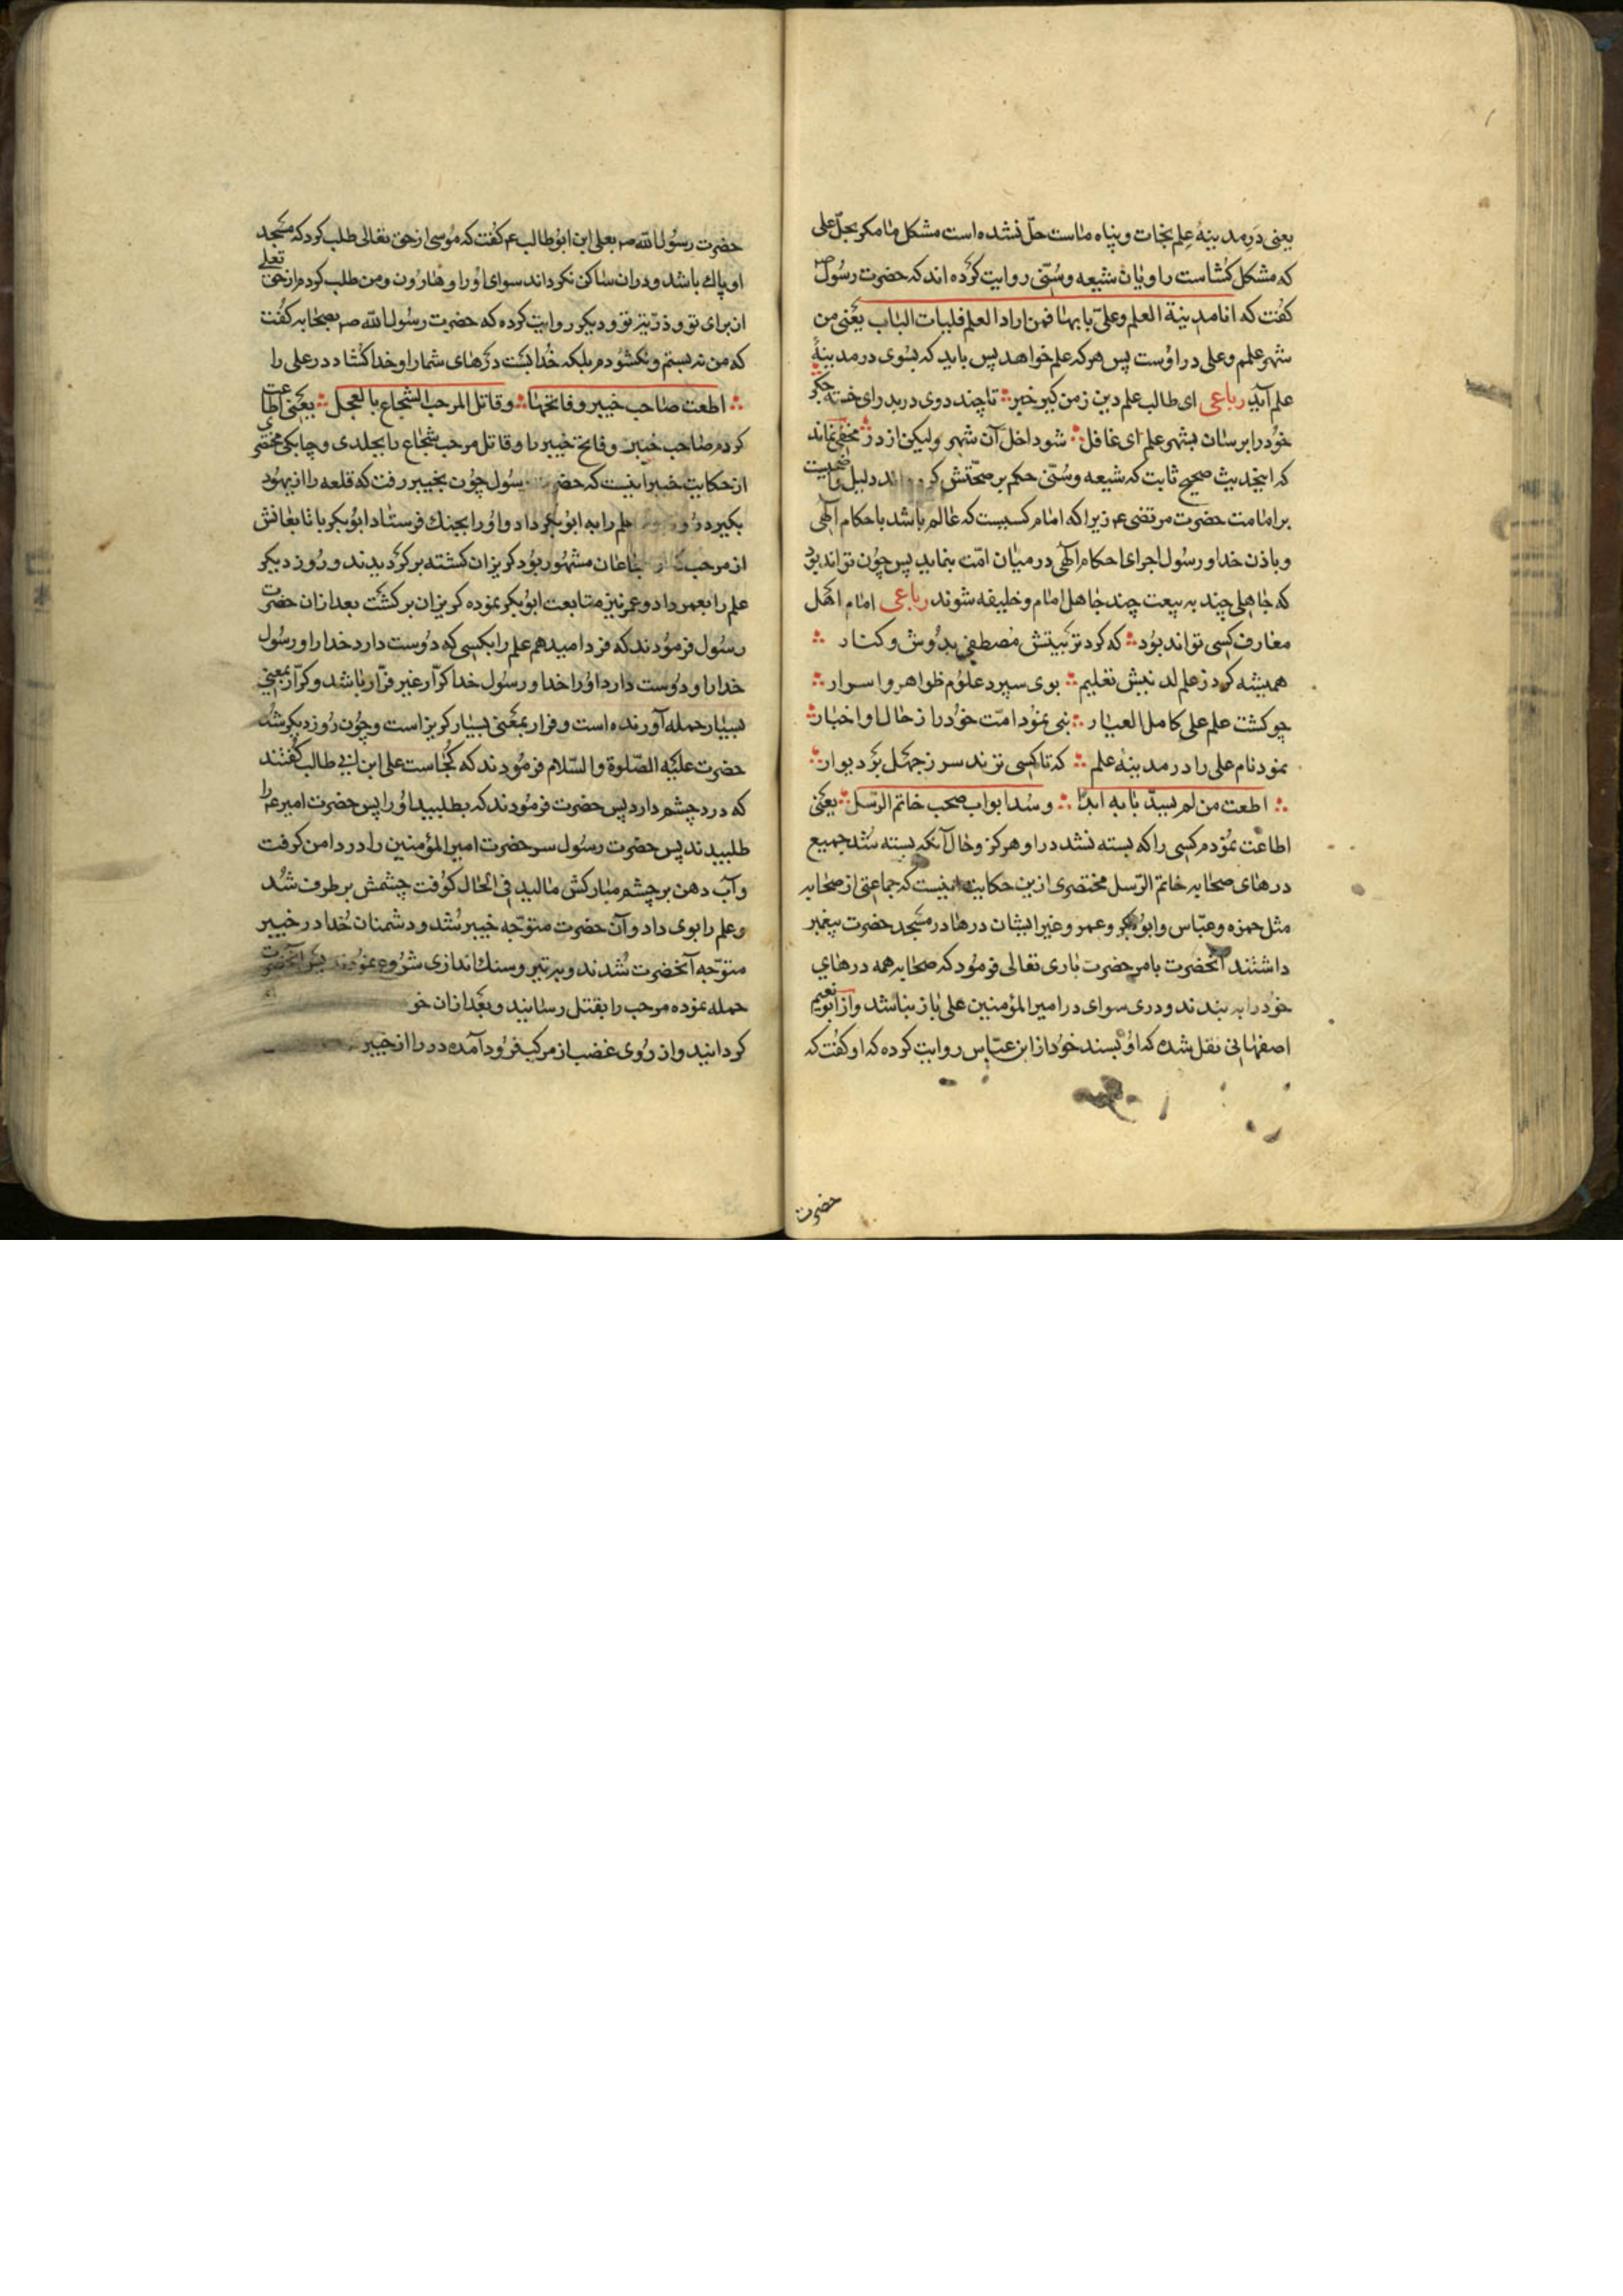 یعنی در مدینهٔ علم نجات و پناه ماست حلّ نشده است مشکل ما مکر بحلّ علی
که مشکل کشاست راویان شیعه وسُنّی روایت کرده اند که حضرت رسُول ص
کفت که انا مدینة العلم وعلیّ بابها فمن اراد العلم فلیات الباب یعنی من
شهر علمم وعلی در اوست پس هر که علم خواهد پس باید که بسوی در مدینهٔ
علم آید رباعی ای طالب علم دین ز من کیر خبر ∴ تا چند دوی در بدر ای خسته جکر
خود را برسان بشهر علم ای غافل ∴ شو داخل آن شهر ولیکن از در ∴ مخفی نماند
که این حدیث صحیح ثابت که شیعه وسُنّی حکم بر صحّتش دلیل واضحیست
بر امامت حضرت مرتضی ع م زیرا که امام کسیست که عالم باشد باحکام الهی
وباذن خدا ورسول اجرای احکام الهی در میان امّت بنماید پس چون تواند بود
که جاهلی چند به بیعت چند جاهل امام وخلیفه شوند رباعی امام اهل
معارف کسی تواند بود ∴ که کرد تربیتش مصطفی بدوش وکنار ∴
همیشه کرد ز علم لدنیش تعلیم ∴ بوی سپرد علوم ظواهر واسرار ∴
چو کشت علم علی کامل العیار ∴ نبی نمود امّت خود را ز حال او اخبار ∴
نمود نام علی را در مدینهٔ علم ∴ که تا کسی نزند سر ز جهل بر دیوار ∴
∴ اطعت من لم یسدّ بابه ابدًا ∴ وسُدا بواب صحب خاتم الرّسل ∴ یعنی
اطاعت نمودم کسی را که بسته نشد در او هرکز وحال آنکه بسته شد جمیع
درهای صحابه خاتم الرّسل مختصری ازین حکایت اینست که جماعتی از صحابه
مثل حمزه وعبّاس وابوبکر وعمر وغیر ایشان درها در مسجد حضرت پیغمبر
داشتند آنحضرت بامر حضرت باری تعالی فرمود که صحابه همه درهای
خود را به بندند ودری سوای در امیر المؤمنین علی باز نباشد واز ابو نعیم
اصفهانی نقل شده که او بسند خود از ابن عبّاس روایت کرده که او کفت که
حضرت
حضرت رسول الله صم بعلی ابن ابو طالب ع م کفت که موسی از حق تعالی طلب کرد که مسجد
او پاك باشد ودر ان ساکن نکرداند سوای او را وهارون ومن طلب کردم از حق تعلی
از برای تو وذرّیّه تو ودیکر روایت کرده که حضرت رسول الله صم بصحابه کفت
که من نه بستم ونکشودم بلکه خدا بست درهای شما را وخدا کشاد در علی را
∴ اطعت صاحب خیبر وفاتحها ∴ وقاتل المرحب الشجاع بالعجل ∴ یعنی اطاعت
کردم صاحب خیبر وفاتح خیبر را وقاتل مرحب شجاع را بجلدی وچابکی مختصری
از حکایت خیبر اینست که حضرت رسول چون بخیبر رفت که قلعه را از یهود
بکیرد روز علم را به ابوبکر داد واو را بجنك فرستاد ابوبکر با تابعانش
از مرحب که از شجاعان مشهور بود کریزان کشته بر کردیدند وروز دیکر
علم را بعمر داد وعمر نیز متابعت ابوبکر نموده کریزان بر کشت بعد ازان حضرت
رسول فرمودند که فردا میدهم علم را بکسی که دوست دارد خدا را ورسول
خدا را ودوست دارد او را خدا ورسول خدا کرّار غیر فرّار باشد وکرّار بمعنی
بسیار حمله آورنده است وفرار بمعنی بسیار کریز است وچون روز دیکر شد
حضرت علیه الصّلوة والسّلام فرمودند که کجاست علی ابن ابی طالب کفتند
که درد چشم دارد پس حضرت فرمودند که بطلبید او را پس حضرت امیر ع م را
طلبیدند پس حضرت رسول سر حضرت امیر المؤمنین را در دامن کرفت
وآب دهن بر چشم مبارکش مالید فی الحال کوفت چشمش بر طرف شد
وعلم را بوی داد وآن حضرت متوجّه خیبر شد ودشمنان خدا در خیبر
متوجّه آنحضرت شدند وبه تیر وسنك اندازی شروع نمودند پس آنحضرت
حمله نموده مرحب را بقتل رسانید وبعد ازان خو
کردانید واز روی غضب از مرکب فرود آمده در را از خیبر